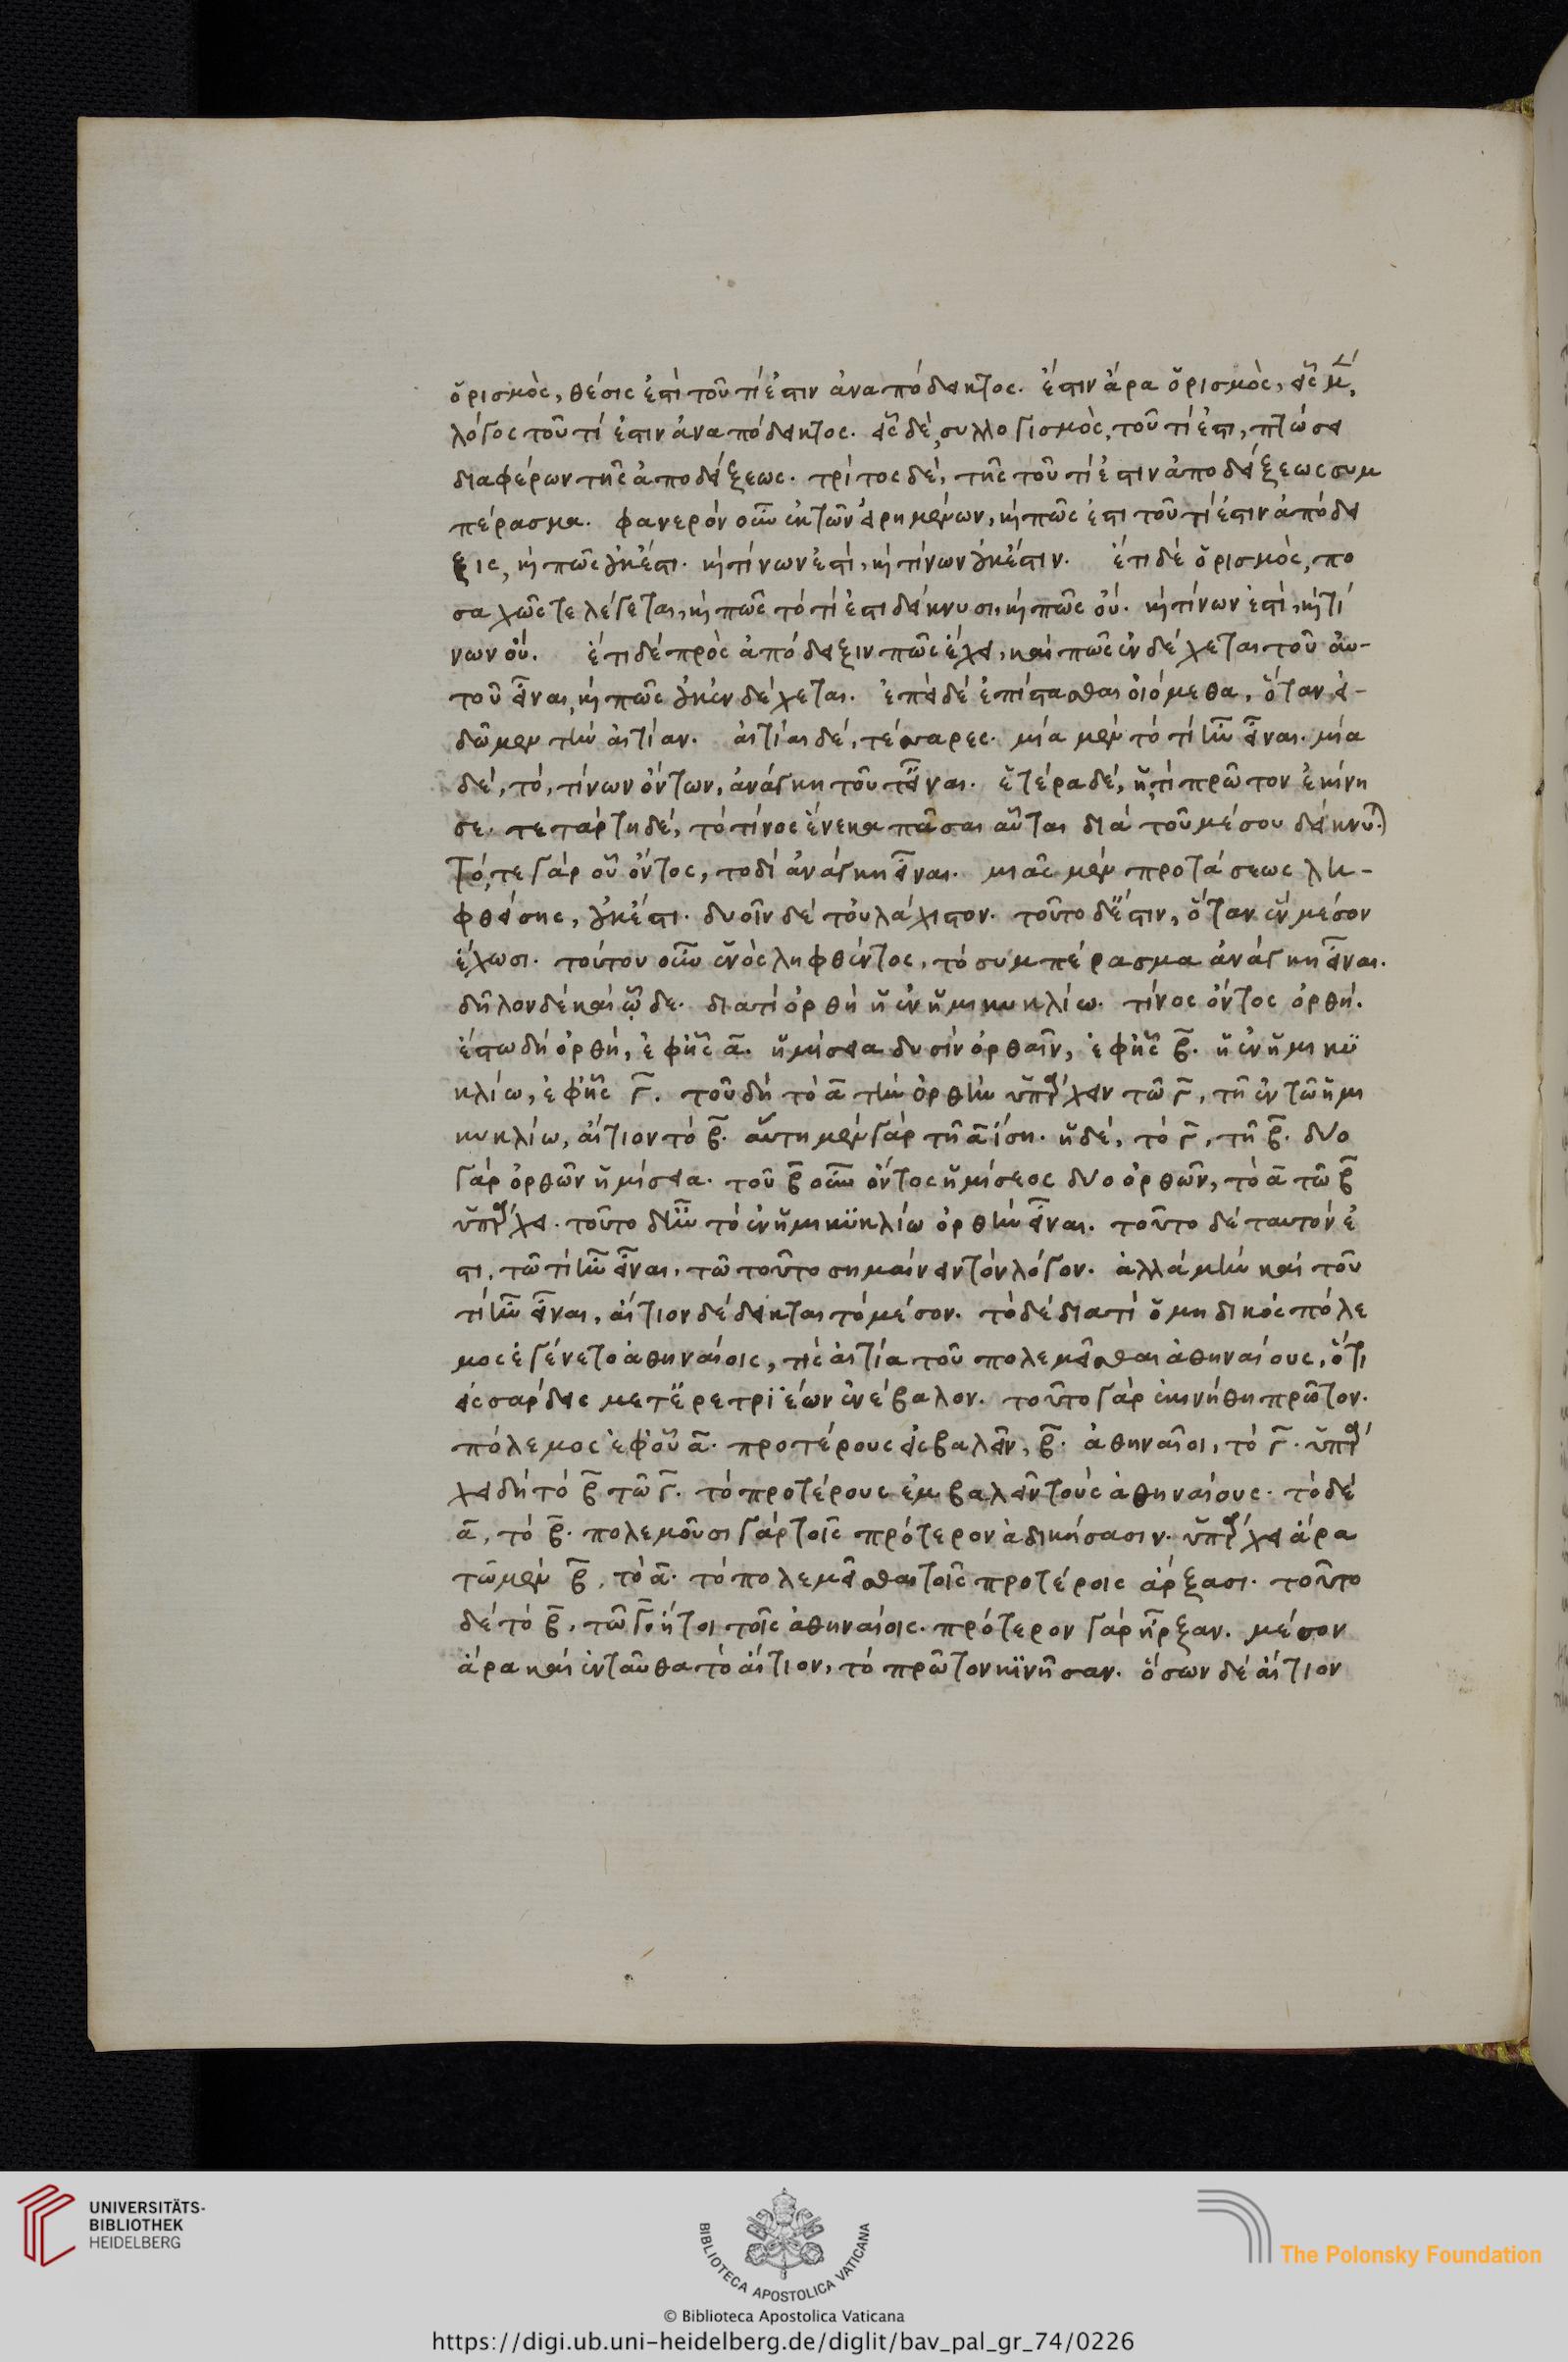 ὁρισμὸς, θέσις ἐστὶ τοῦ τί ἐστιν ἀναπόδεικτος. ἔστιν ἄρα ὁρισμὸς, εἷς μὲν,
λόγος τοῦ τί ἐστιν ἀναπόδεικτος. εἷς δὲ, συλλογισμὸς, τοῦ τί ἐστι, πτώσει
διαφέρων τῆς ἀποδείξεως. τρίτος δέ, τῆς τοῦ τί ἐστιν ἀποδείξεως συμ
πέρασμα. φανερὸν οὖν ἐκ τῶν εἰρημένων, καὶ πῶς ἐστι τοῦ τί ἐστιν ἀπόδει
ξις, καὶ πῶς οὐκ ἔστι. καὶ τίνων ἐστί, καὶ τίνων οὐκ ἔστιν. ἔτι δὲ ὁρισμὸς, πο
σαχῶς τε λέγεται, καὶ πῶς τὸ τί ἐστι δείκνυσι, καὶ πῶς οὔ. καὶ τίνων ἐστὶ, καὶ τί
νων οὔ. ἔτι δὲ πρὸς ἀπόδειξιν πῶς ἔχει, καὶ πῶς ἐνδέχεται τοῦ αὐ-
τοῦ εἶναι, καὶ πῶς οὐκ ἐνδέχεται. ἐπεὶ δὲ ἐπίστασθαι οἰόμεθα, ὅταν εἰ-
δῶμεν τὴν αἰτίαν. αἰτίαι δέ, τέσσαρες. μία μὲν τὸ τί ἦν εἶναι. μία
δέ, τό, τίνων ὄντων, ἀνάγκη τοῦτ' εἶναι. ἑτέρα δέ, ἥ τι πρῶτον ἐκίνη
σε. τετάρτη δέ, τὸ τίνος ἕνεκα πᾶσαι αὗται διὰ τοῦ μέσου δείκνυνται
τό, τε γὰρ οὗ ὄντος, τοδὶ ἀνάγκη εἶναι. μιᾶς μὲν προτάσεως λη-
φθείσης, οὐκ ἔστι. δυοῖν δὲ τοὐλάχιστον. τοῦτο δ' ἔστιν, ὅταν ἓν μέσον
ἔχωσι. τούτου οὖν ἑνὸς ληφθέντος, τὸ συμπέρασμα ἀνάγκη εἶναι.
δῆλον δὲ καὶ ὧδε. διατί ὀρθὴ ἡ ἐν ἡμικυκλίω. τίνος ὄντος ὀρθή.
ἔστω δὴ ὀρθή, ἐφ' ἧς α. ἡμίσεια δυσὶν ὀρθαῖν, ἐφ' ἧς β. ἡ ἐν ἡμικυ
κλίω, ἐφ' ἧς γ. τοῦ δὴ τὸ α τὴν ὀρθὴν ὑπάρχειν τῶ γ, τῆ ἐν τῶ ἡμι
κυκλίω, αἴτιον τὸ β. αὕτη μὲν γὰρ τῆ α ἴση. ἡ δέ, τὸ γ, τῆ β. δυο
γὰρ ὀρθῶν ἡμίσεια. τοῦ β οὖν ὄντος ἡμίσεος δυο ὀρθῶν, τὸ α τῶ β
ὑπάρχει. τοῦτο δ' ἦν τὸ ἐν ἡμικυκλίω ὀρθὴν εἶναι. τοῦτο δὲ ταυτόν ἐ
στι, τῶ τί ἦν εἶναι, τῶ τοῦτο σημαίνειν τὸν λόγον. ἀλλὰ μὴν καὶ τοῦ
τί ἦν εἶναι, αἴτιον δέδεικται τὸ μέσον. τὸ δὲ διατί ὁ μηδικὸς πόλε
μος ἐγένετο ἀθηναίοις, τίς αἰτία τοῦ πολεμεῖσθαι ἀθηναίους, ὅτι
εἰς σάρδεις μετ' ἐρετριέων ἐνέβαλον. τοῦτο γὰρ ἐκινήθη πρῶτον.
πόλεμος ἐφ' οὗ α. προτέρους εἰσβαλεῖν, β. ἀθηναῖοι, τὸ γ. ὑπάρ
χει δὴ τὸ β τῶ γ. τὸ προτέρους ἐμβαλεῖν τοὺς ἀθηναίους. τὸ δὲ
α, τὸ β. πολεμοῦσι γὰρ τοῖς πρότερον ἀδικήσασιν. ὑπάρχει ἄρα
τῶ μὲν β, τὸ α. τὸ πολεμεῖσθαι τοῖς προτέροις ἄρξασι. τοῦτο
δὲ τὸ β, τῶ γ. ἤτοι τοῖς ἀθηναίοις. πρότερον γὰρ ἦρξαν. μέσον
ἄρα καὶ ἐνταῦθα τὸ αἴτιον, τὸ πρῶτον κινῆσαν. ὅσων δὲ αἴτιον
UNIVERSITÄTS-
BIBLIOTHEK
HEIDELBERG
BIBLIOTECA APOSTOLICA VATICANA
The Polonsky Foundation
© Biblioteca Apostolica Vaticana
https://digi.ub.uni-heidelberg.de/diglit/bav_pal_gr_74/0226